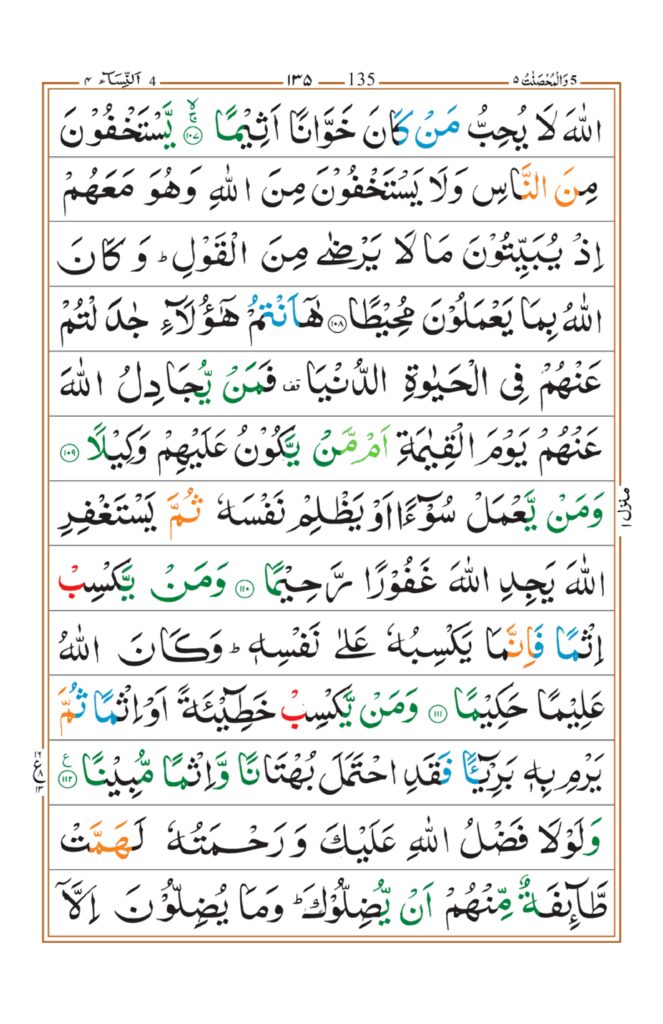 5 وَالْمُحْصَنٰتُ ۵ 135 ۱۳۵ 4 اَلنِّسَآء ۴
اللّٰهَ لَا يُحِبُّ مَنْ كَانَ خَوَّانًا اَثِيْمًا ۙ۝۱۰۷ يَّسْتَخْفُوْنَ
مِنَ النَّاسِ وَلَا يَسْتَخْفُوْنَ مِنَ اللّٰهِ وَهُوَ مَعَهُمْ
اِذْ يُبَيِّتُوْنَ مَا لَا يَرْضٰى مِنَ الْقَوْلِ ؕ وَ كَانَ
اللّٰهُ بِمَا يَعْمَلُوْنَ مُحِيْطًا ۝۱۰۸ هٰۤاَنْتُمْ هٰۤؤُلَآءِ جٰدَلْتُمْ
عَنْهُمْ فِى الْحَيٰوةِ الدُّنْيَا قف فَمَنْ يُّجَادِلُ اللّٰهَ
عَنْهُمْ يَوْمَ الْقِيٰمَةِ اَمْ مَّنْ يَّكُوْنُ عَلَيْهِمْ وَكِيْلًا ۝۱۰۹
وَمَنْ يَّعْمَلْ سُوْٓءًا اَوْ يَظْلِمْ نَفْسَهٗ ثُمَّ يَسْتَغْفِرِ
اللّٰهَ يَجِدِ اللّٰهَ غَفُوْرًا رَّحِيْمًا ۝۱۱۰ وَمَنْ يَّكْسِبْ
اِثْمًا فَاِنَّمَا يَكْسِبُهٗ عَلٰى نَفْسِهٖ ؕ وَكَانَ اللّٰهُ
عَلِيْمًا حَكِيْمًا ۝۱۱۱ وَمَنْ يَّكْسِبْ خَطِيْٓئَةً اَوْ اِثْمًا ثُمَّ
يَرْمِ بِهٖ بَرِيْٓئًا فَقَدِ احْتَمَلَ بُهْتَانًا وَّاِثْمًا مُّبِيْنًا ۝۱۱۲ ع
وَلَوْلَا فَضْلُ اللّٰهِ عَلَيْكَ وَرَحْمَتُهٗ لَهَمَّتْ
طَّآئِفَةٌ مِّنْهُمْ اَنْ يُّضِلُّوْكَ ؕ وَمَا يُضِلُّوْنَ اِلَّاۤ
منزل ۱